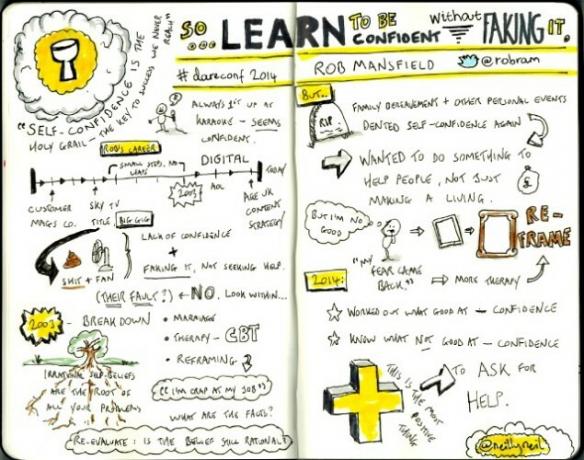 SO
... LEARN TO BE CONFIDENT without FAKING IT.
#dareconf 2014
ROB MANSFIELD @robram
"SELF-CONFIDENCE IS THE
HOLY GRAIL - THE KEY TO SUCCESS WE NEVER
REACH"
ALWAYS 1ST UP AT
KARAOKE - SEEMS
CONFIDENT.
ROB'S CAREER
SMALL STEPS, NO
LEAPS
DIGITAL
TODAY
CUSTOMER
MAGS CO.
SKY TV
TITLE.
BIG GIG
2003
AOL
AGE UK
CONTENT
STRATEGY
SHIT + FAN
LACK OF CONFIDENCE
+
FAKING IT, NOT SEEKING HELP.
(THEIR FAULT?) ← NO. LOOK WITHIN...
2003 - BREAKDOWN
• MARRIAGE
• THERAPY - CBT
• REFRAMING
IRRATIONAL SELF-BELIEFS
ARE THE ROOT OF
ALL YOUR PROBLEMS
"I'M CRAP AT MY JOB"
WHAT ARE THE FACTS?
RE-EVALUATE: IS THE BELIEF STILL RATIONAL?
BUT...
RIP
FAMILY BEREAVEMENT + OTHER PERSONAL EVENTS
DENTED SELF-CONFIDENCE AGAIN
WANTED TO DO SOMETHING TO
HELP PEOPLE, NOT JUST
MAKING A LIVING.
£
BUT I'M NO
GOOD
RE-
FRAME
2014:
"MY
FEAR CAME
BACK." ⇒ MORE THERAPY
☆ WORKED OUT WHAT GOOD AT - CONFIDENCE
☆ KNOW WHAT NOT GOOD AT - CONFIDENCE
TO ASK FOR
HELP.
THIS IS THE MOST
POSITIVE
THING
@neillyneil